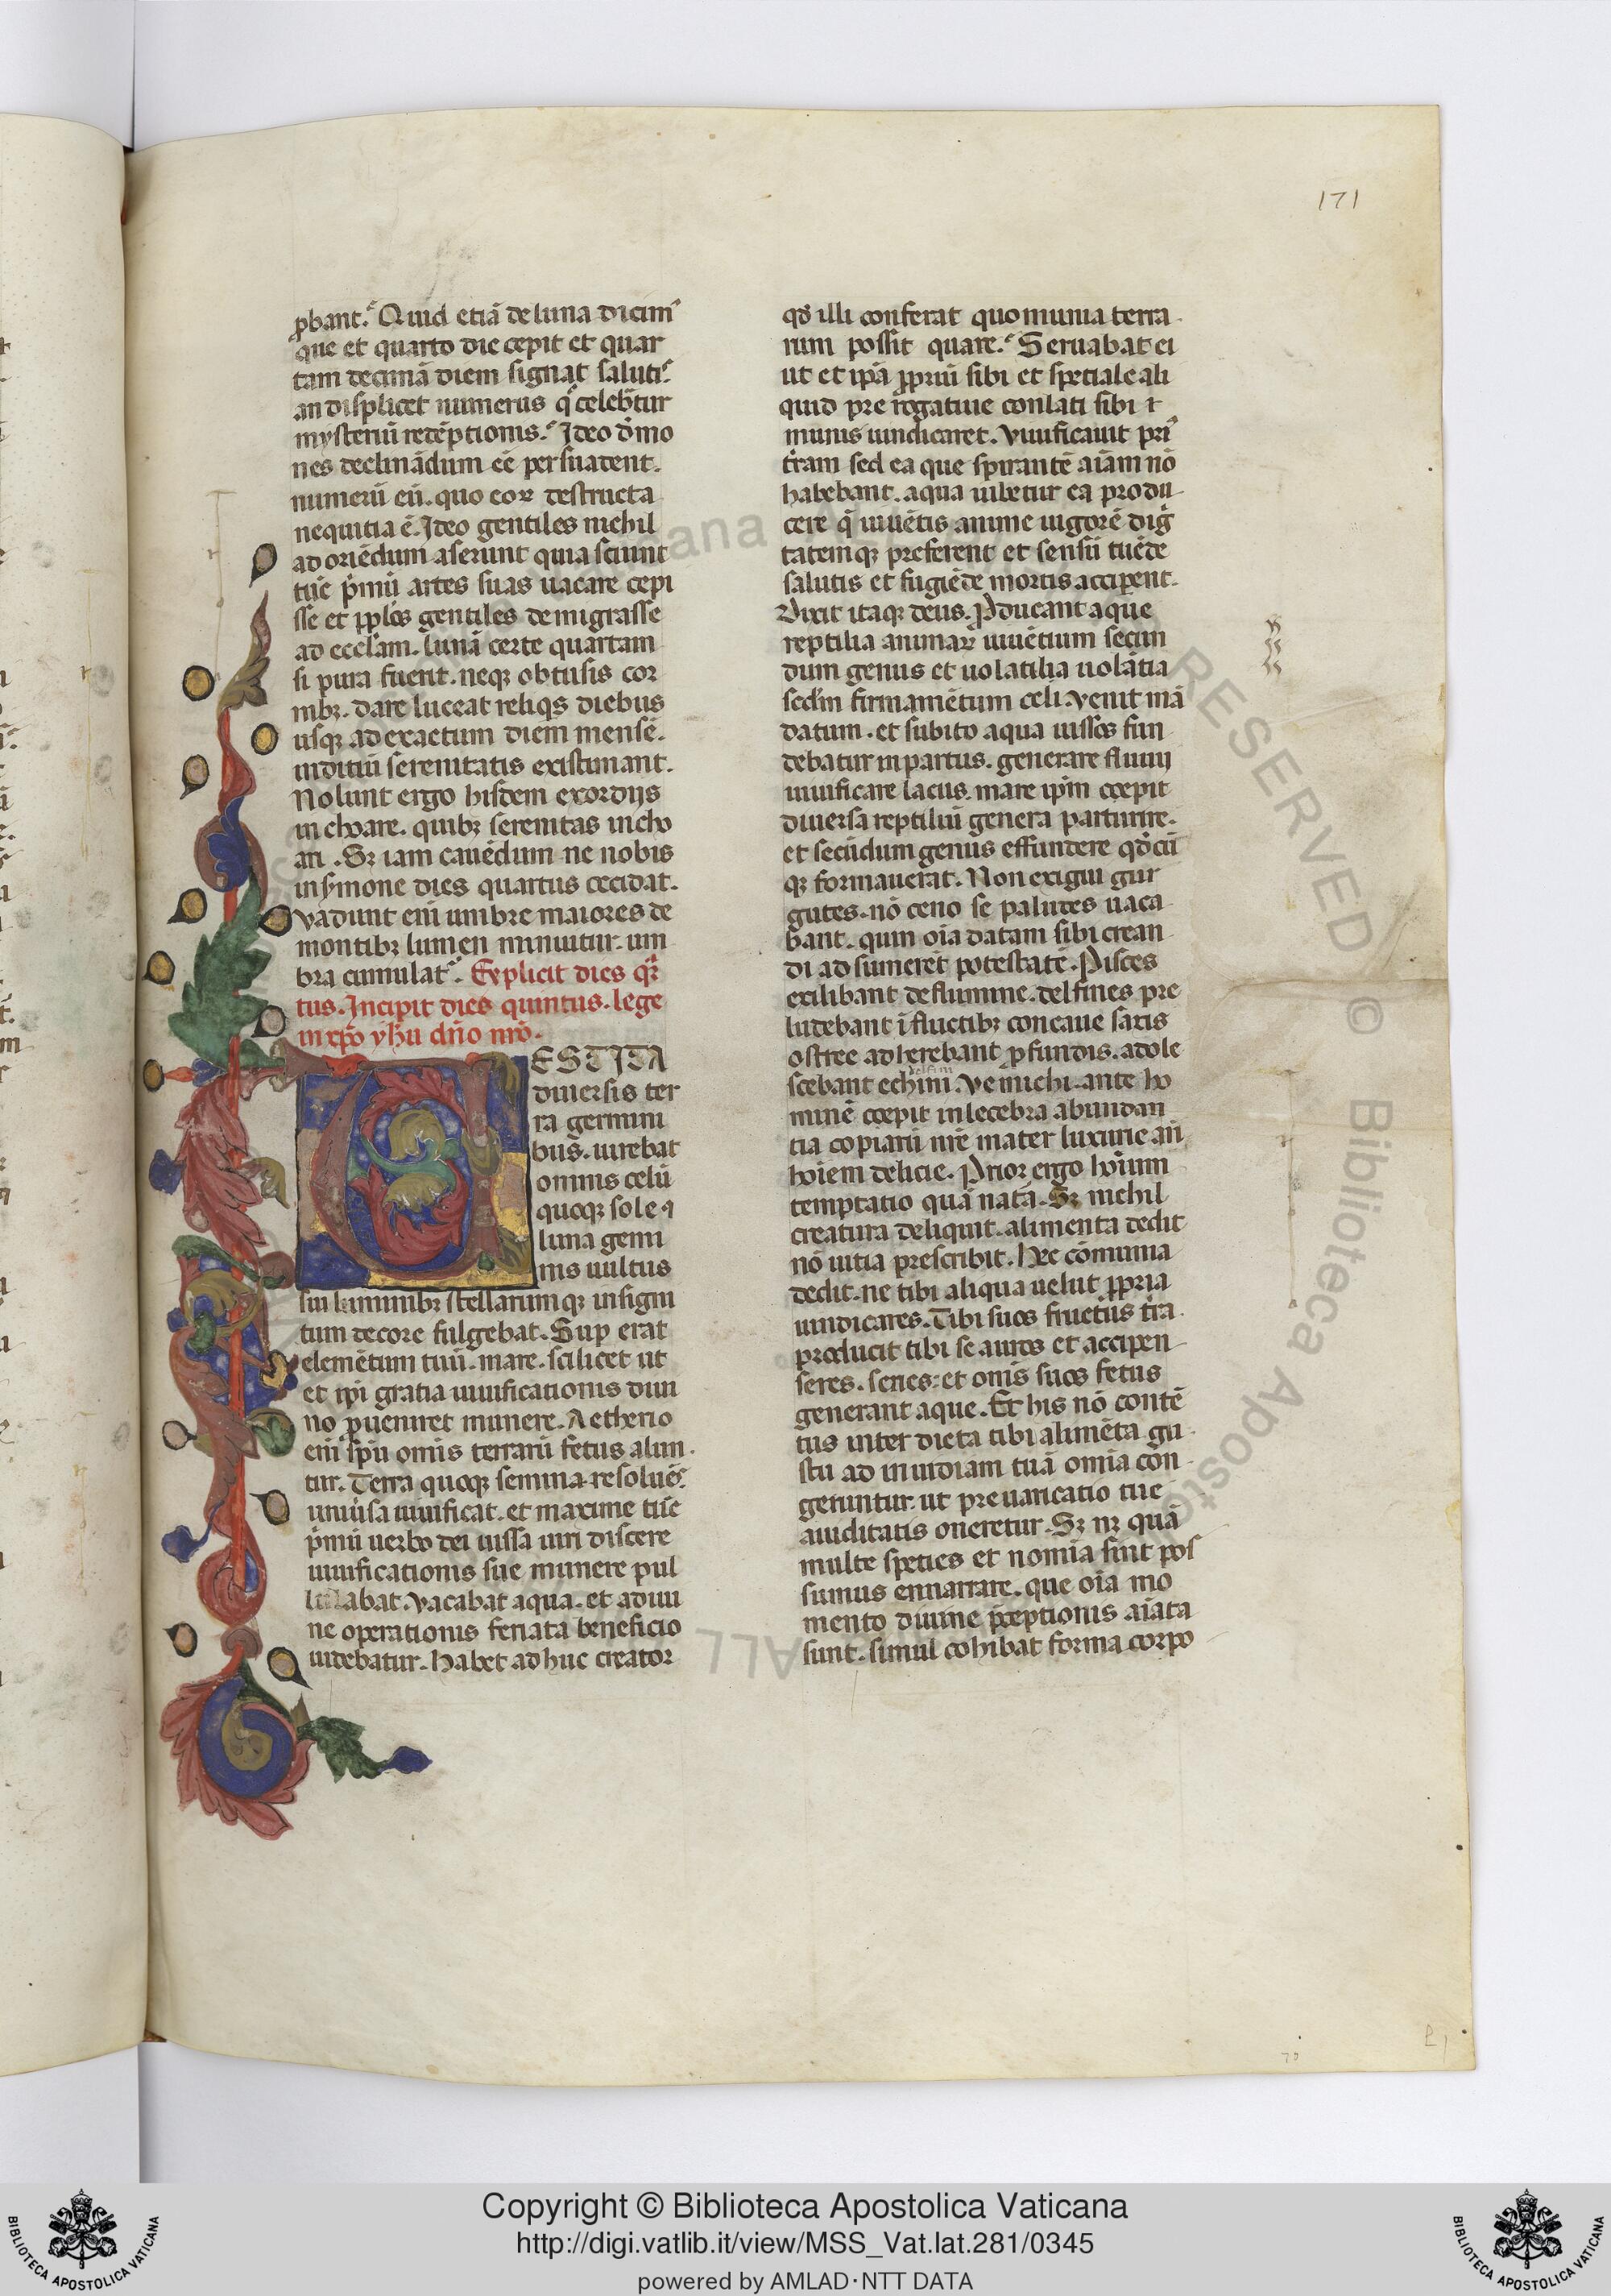 171
ꝓbant. Quid etiā de luna dicim᷒
que et quarto die cepit et quar
tam decimā diem signat salutis.
an displicet numerus q̇ celebr̄tur
mysteriū redēptionis. Ideo dēmo
nes declinādum eē persuadent.
numerū eū. quo eoꝝ destructa
nequitia ē. Ideo gentiles nichil
ad oriēdum aserunt quia sciunt
tūc ṗmū artes suas uacare cepi
sse et pplo᷒s gentiles demigrasse
ad eccl̄am. lunā certe quartam
si pura fuerit. neqꝫ obtusis cor
nibꝫ. dare luceat reliq᷒s diebus
usqꝫ ad exactum diem mensē.
inditiū serenitatis existimant.
Nolunt ergo hisdem exordijs
inchoare. quibꝫ serenitas incho
ari. Sꝫ iam cauēdum ne nobis
in sermone dies quartus cecidat.
Vadunt enī umbre maiores de
montibꝫ lumen minuitur. um
bra cumulat᷒. Explicit dies qr̄
tus. Incipit dies quintus. lege
in xp̄o yh̄u dn̄o nr̄o.
VESTITA
diuersis ter
ra germini
bus. uirebat
omnis celū
quoqꝫ sole ⁊
luna gemi
nis uultus
sui luminibꝫ stellarumqꝫ insigni
tum decore fulgebat. Sup erat
elemētum tiū. mare. scilicet ut
et ipi gratia uiuificationis diui
no ꝓueniret munere. Aetherio
enī spū omīs terrarū fetus alun
tur. Terra quoqꝫ semina resoluēs.
uniūsa uiuificat. et maxime tūc
ṗmū uerbo dei iussa uiri discere
uiuificationis sue munere pul
lulabat. Vacabat aqua. et a diui
ne operationis feriata beneficio
uidebatur. habet adhuc creator
qd̄ illi conferat quo munia terra
rum possit quare. Seruabat ei
ut et ipā ꝓpriū sibi et speciale ali
quid prerogatiue conlati sibi ⁊
munis uindicaret. Viuificauit pri᷒
tr̄am sed ea que spirantē aīam nō
habebant. aqua iubetur ea produ
cere q̄ uiuētis anime uigorē dig̅
tatemqꝫ preferent et sensū tuēde
salutis et fugiēde mortis acciperent.
Dixit itaqꝫ deus. Ꝓducant aque
reptilia animaꝝ uiuētium secun
dum genus et uolatilia uolātia
secd̄m firmamētum celi. Venit mā
datum. et subito aqua iussos fun
debatur in partus. generare fluuij
uiuificare lacus. mare ip̄m coepit
diuersa reptiliū genera parturire.
et secūdum genus effundere qd̄cū
qꝫ formauerat. Non exigui gur
gutes. nō ceno se paludes uaca
bant. quin oīa datam sibi crean
di adsumeret potestatē. Pisces
exilibant de flumine. delfines pre
ludebant ī fluctibꝫ concaue saxis
ostree adherebant ꝓfundis. adole
delfini
scebant echini. Ve michi. ante ho
minē coepit inlecebra abundan
tia copiarū nr̄e mater luxurie an̄
hoīem delicie. Prior ergo hoīum
temptatio quā nata. Sꝫ nichil
creatura deliquit. alimenta dedit
nō uitia prescribit. hec cōmunia
dedit. ne tibi aliqua uelut ꝓpria
uindicares. Tibi suos fructus tr̄a
producit tibi se auros et accipen
seres. series: et onīs suos fetus
generant aque. Et his nō contē
tus inter dicta tibi alimēta gu
stu ad inuidiam tuā omīa con
geruntur. ut preuaricatio tue
auiditatis oneretur. Sꝫ nꝫ quā
multe species et nomīa sint pos
sumus ennarrare. que oīa mo
mento diuine p̄ceptionis aīata
sunt. simul cohibat forma corpo
Copyright © Biblioteca Apostolica Vaticana
http://digi.vatlib.it/view/MSS_Vat.lat.281/0345
powered by AMLAD·NTT DATA
BIBLIOTECA APOSTOLICA VATICANA
BIBLIOTECA APOSTOLICA VATICANA